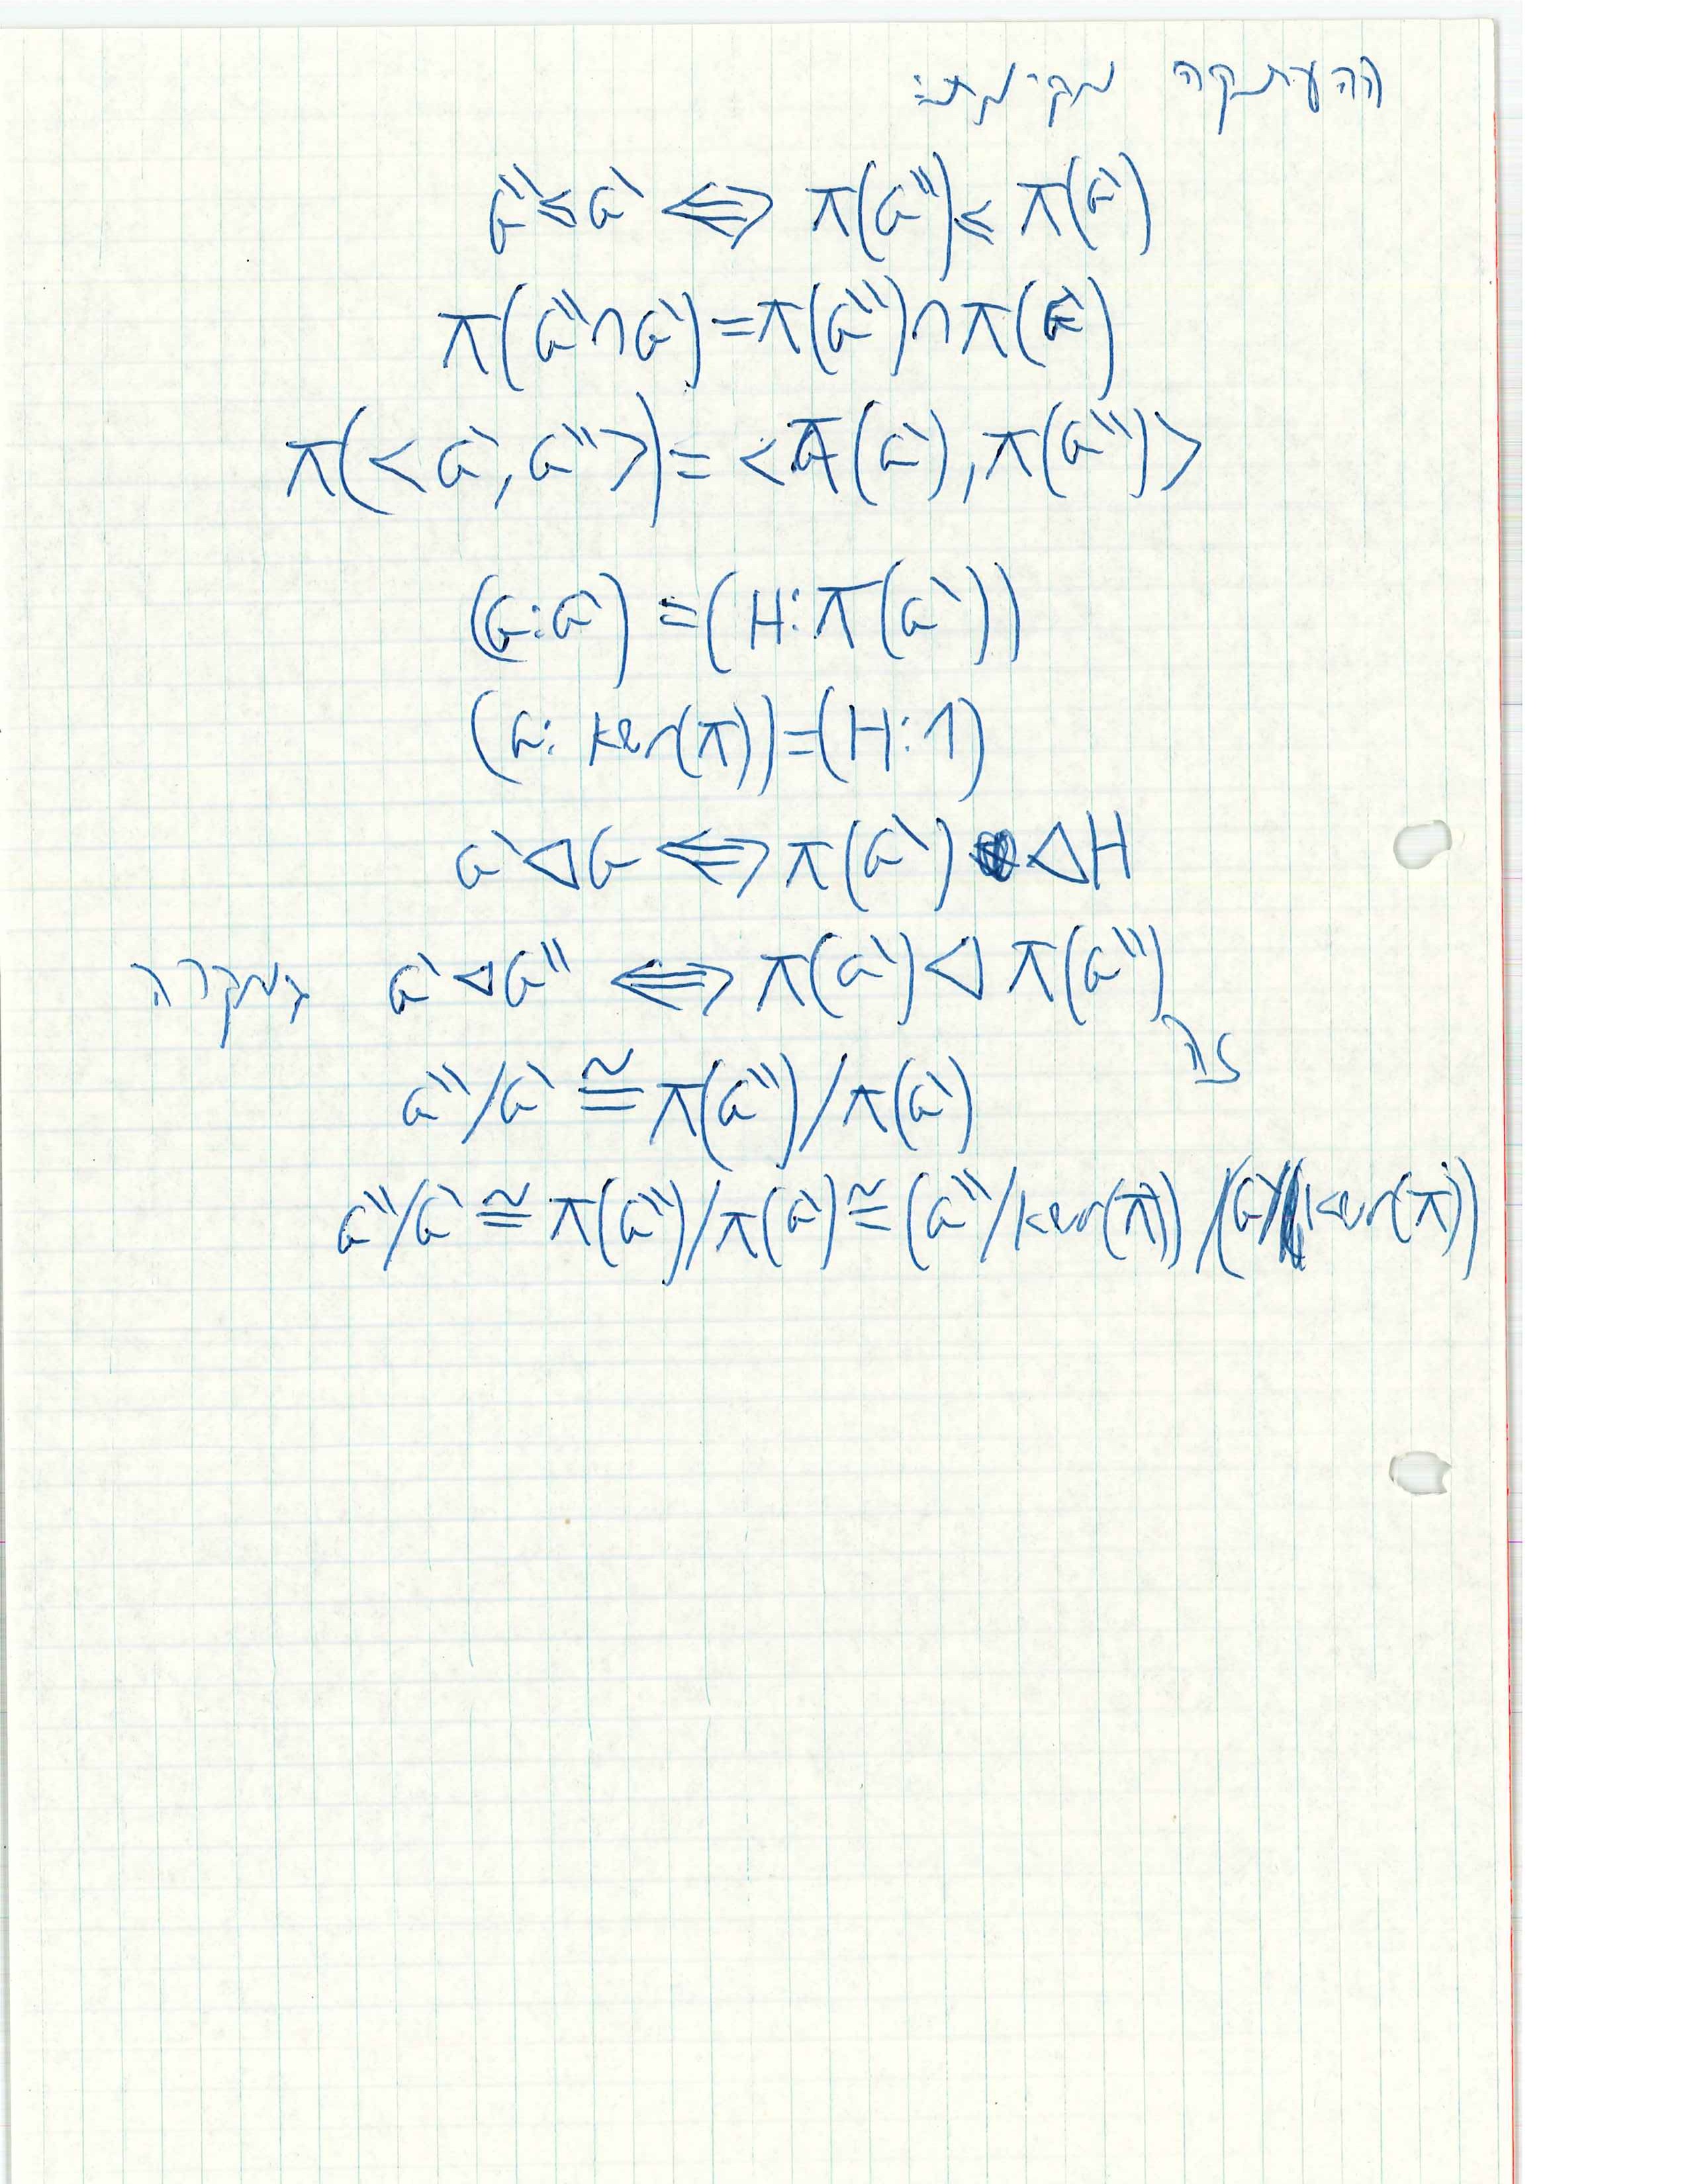 ההעתקה מקימת:
G''≤G' ⟺ π(G'')≤π(G')
π(G''∩G')=π(G'')∩π(G')
π(<G',G''>)=<π(G'),π(G'')>
(G:G')=(H:π(G'))
(G:ker(π))=(H:1)
G'◁G ⟺ π(G')◁H
G'◁G'' ⟺ π(G')◁π(G'') במקרה
זה
G''/G'≅π(G'')/π(G')
G''/G'≅π(G'')/π(G')≅(G''/ker(π))/(G'/ker(π))